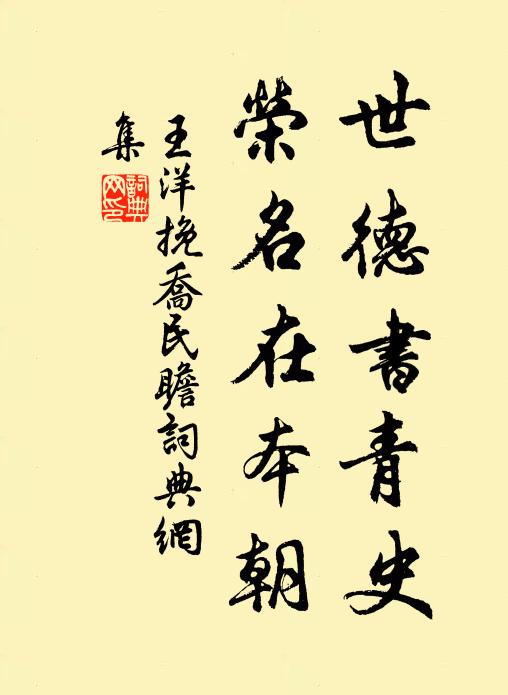 世德書青史
榮名在本朝
王洋挽喬民瞻詞典網
集
詞典
网印